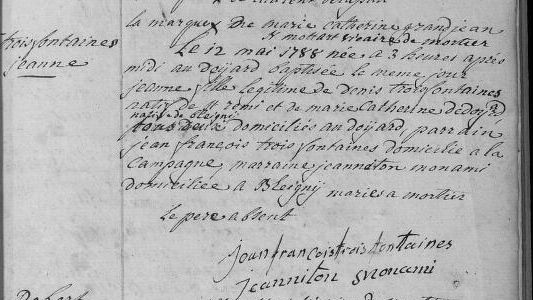 la marque x de marie catherine grandjean
N mottart vicaire de mortier
troisfontaines
jeanne
Le 12 mai 1788 née a 3 heures après
midi au doÿard baptisée le meme jour
jeanne fille legitime de denis troisfontaines
natif de st remi et de marie Catherine dedoyard
native de Blegni
tous deux domiciliés au doÿard, parrain
jean françois troisfontaines domicilié a la
Campagne, marraine jeanneton monami
domiciliée a Blegnÿ mariés a mortier
Le pere absent
jean francois trois fontaines
jeanniton monami